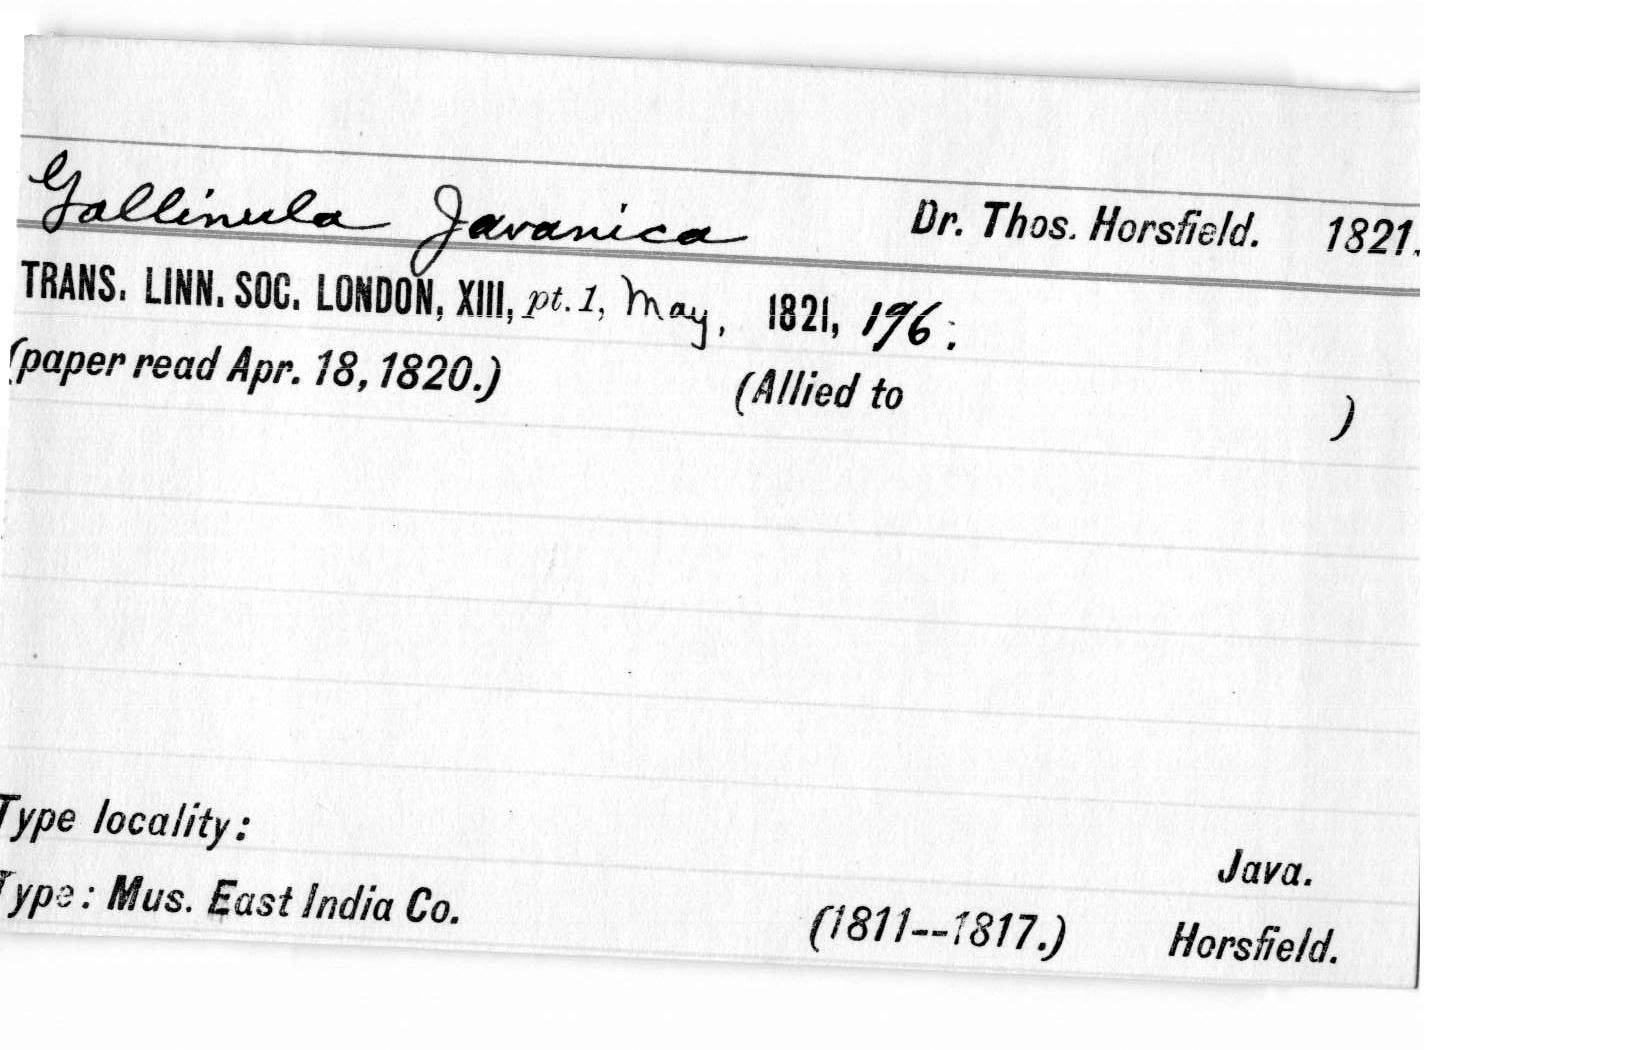 Gallinula Javanica Dr. Thos. Horsfield. 1821.
TRANS. LINN. SOC. LONDON, XIII, pt. 1, May, 1821, 196:
(paper read Apr. 18, 1820.) (Allied to )
Type locality: Java.
Type: Mus. East India Co. (1811--1817.) Horsfield.